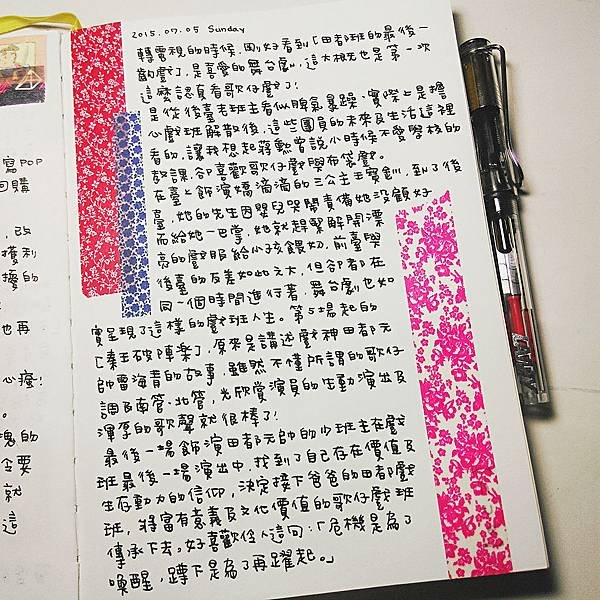 2015.07.05 Sunday
轉電視的時候,剛好看到「田都班的最後一
齣戲」,是喜愛的舞台劇,這大概也是第一次
這麼認真看歌仔戲了!
是從後臺老班主看似脾氣暴躁、實際上是擔
心戲班解散後,這些團員的未來及生活這裡
看的,讓我想起蔣勳曾說小時候不愛學校的
教課,卻喜歡歌仔戲與布袋戲。
在臺上飾演嬌滴滴的三公主王寶釧,到了後
臺,她的先生因嬰兒哭鬧責備她沒顧好
而給她一巴掌,她就趕緊解開漂
亮的戲服給小孩餵奶,前臺與
後臺的反差如此之大,但卻都在
同一個時間進行著,舞台劇也如
實呈現了這樣的戲班人生。第5場起的
「秦王破陣樂」,原來是講述戲神田都元
帥雷海青的故事,雖然不懂所謂的歌仔
調及南管、北管,光欣賞演員的生動演出及
渾厚的歌聲就很棒了!
最後一場飾演田都元帥的少班主在戲
班最後一場演出中,找到了自己存在價值及
生存動力的信仰,決定接下爸爸的田都戲
班,將富有意義及文化價值的歌仔戲班
傳承下去。好喜歡伶人這句:「危機是為了
喚醒,蹲下是為了再躍起。」
寫POP
回購
,改
獲利
擾的
也再
心癢!
。
塊的
全要
就
這
LAMY